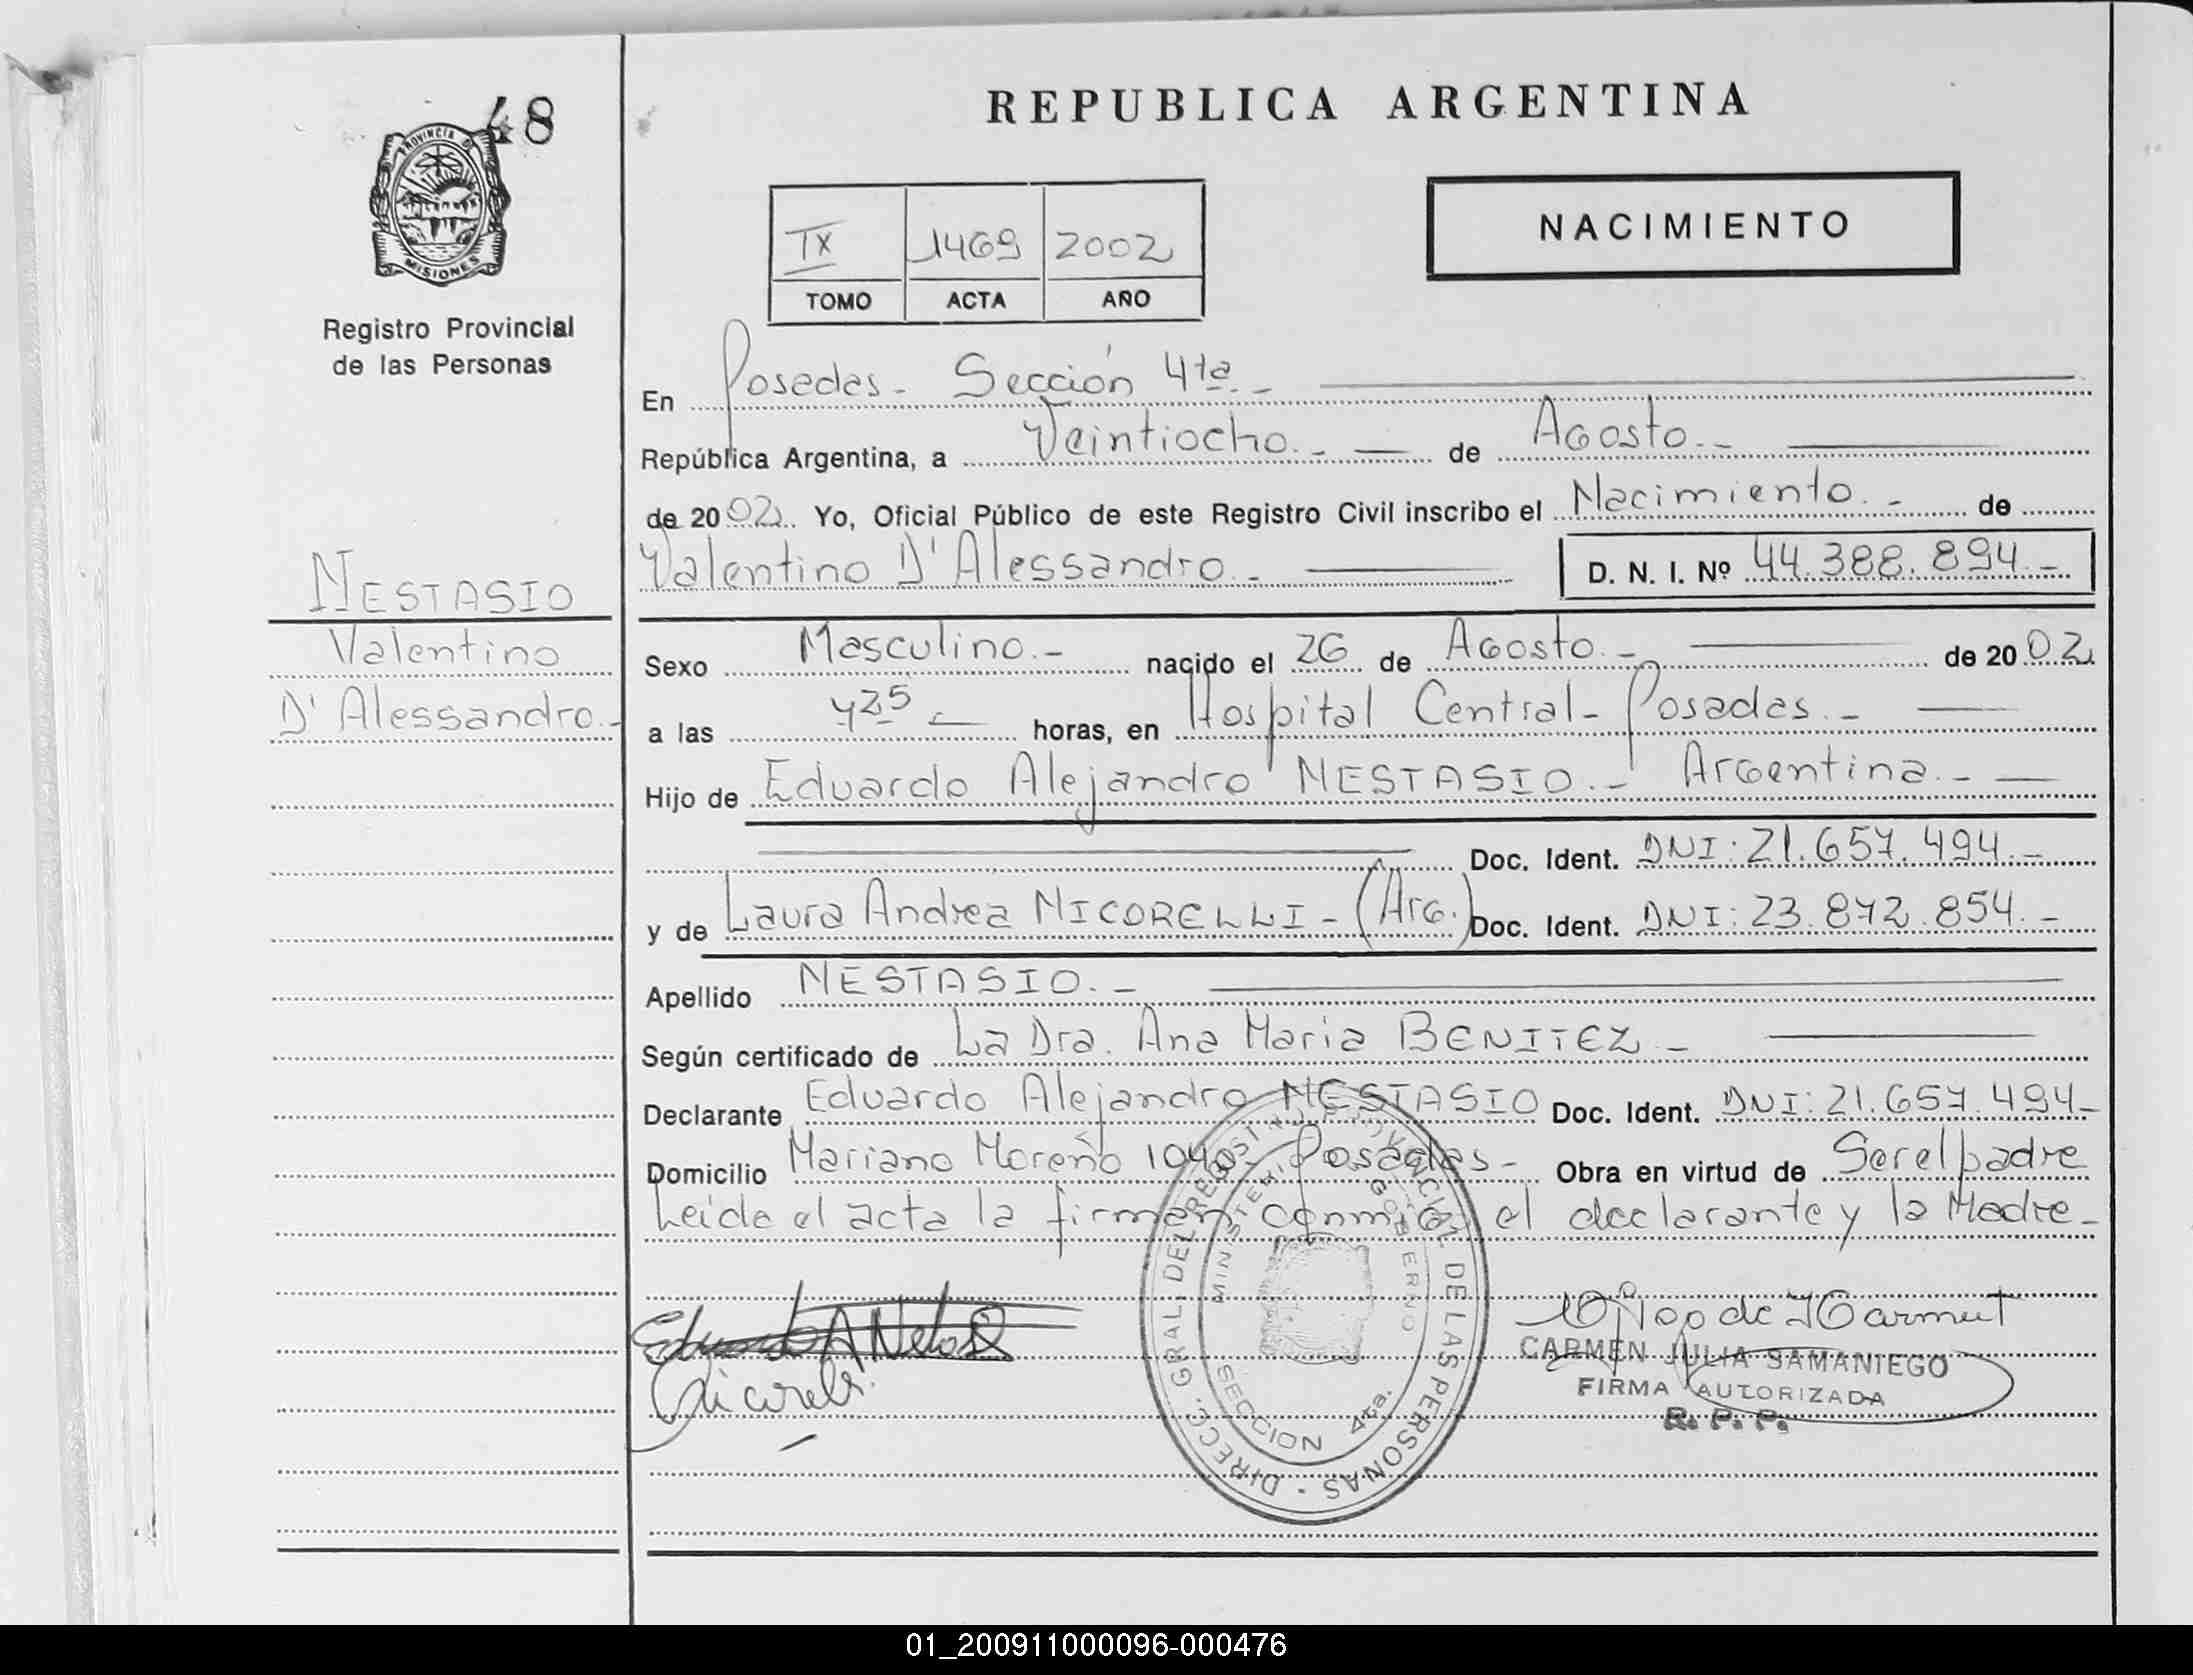 48
PROVINCIA DE
MISIONES
Registro Provincial
de las Personas
NESTASIO
Valentino
D'Alessandro.-
REPUBLICA ARGENTINA
NACIMIENTO
IX 1469 2002
TOMO ACTA AÑO
En Posadas - Sección 4ta. -
República Argentina, a Veintiocho. - de Agosto. -
de 2002. Yo, Oficial Público de este Registro Civil inscribo el Nacimiento. - de
Valentino D'Alessandro. - D. N. I. Nº 44.388.894. -
Sexo Masculino. - nacido el 26 de Agosto. - de 2002
a las 725 - horas, en Hospital Central - Posadas. -
Hijo de Eduardo Alejandro NESTASIO. - Argentina. -
Doc. Ident. DNI: 21.657.494. -
y de Laura Andrea NICORELLI - (Arg.) Doc. Ident. DNI: 23.872.854. -
Apellido NESTASIO. -
Según certificado de La Dra. Ana Maria BENITEZ -
Declarante Eduardo Alejandro NESTASIO Doc. Ident. DNI: 21.657.494 -
Domicilio Mariano Moreno 1040 - Posadas - Obra en virtud de Ser el padre
Leida el acta la firman conmigo el declarante y la Madre -
DIRECC. GRAL. DEL REGISTRO PROVINCIAL DE LAS PERSONAS
MINISTERIO GOBIERNO
SECCION 4ta.
CARMEN JULIA SAMANIEGO
FIRMA AUTORIZADA
R. P. P.
01_200911000096-000476